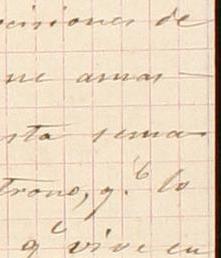 cisiones de
ne amas-
sta sema-
trono, q.e lo
q.e vive en